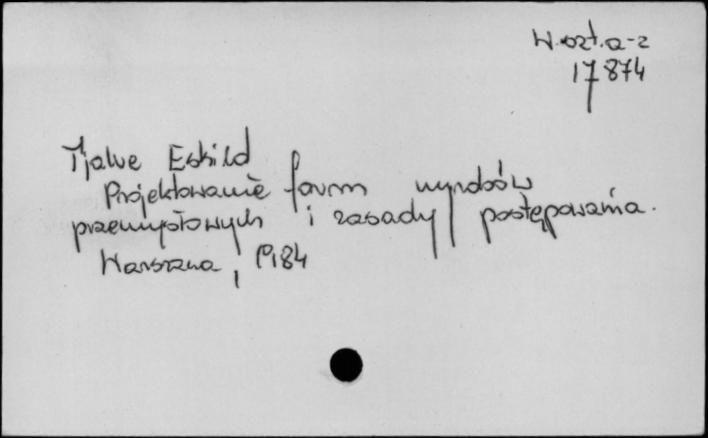 W. szt. a-z
17874
Tjalve Eskild
Projektowanie form wyrobów
przemysłowych i zasady postępowania.
Warszawa, 1984